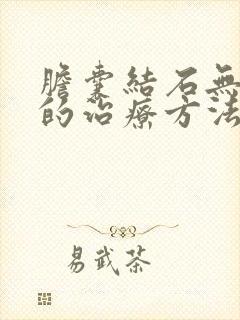 膽囊結石無
的治療方法
易武茶